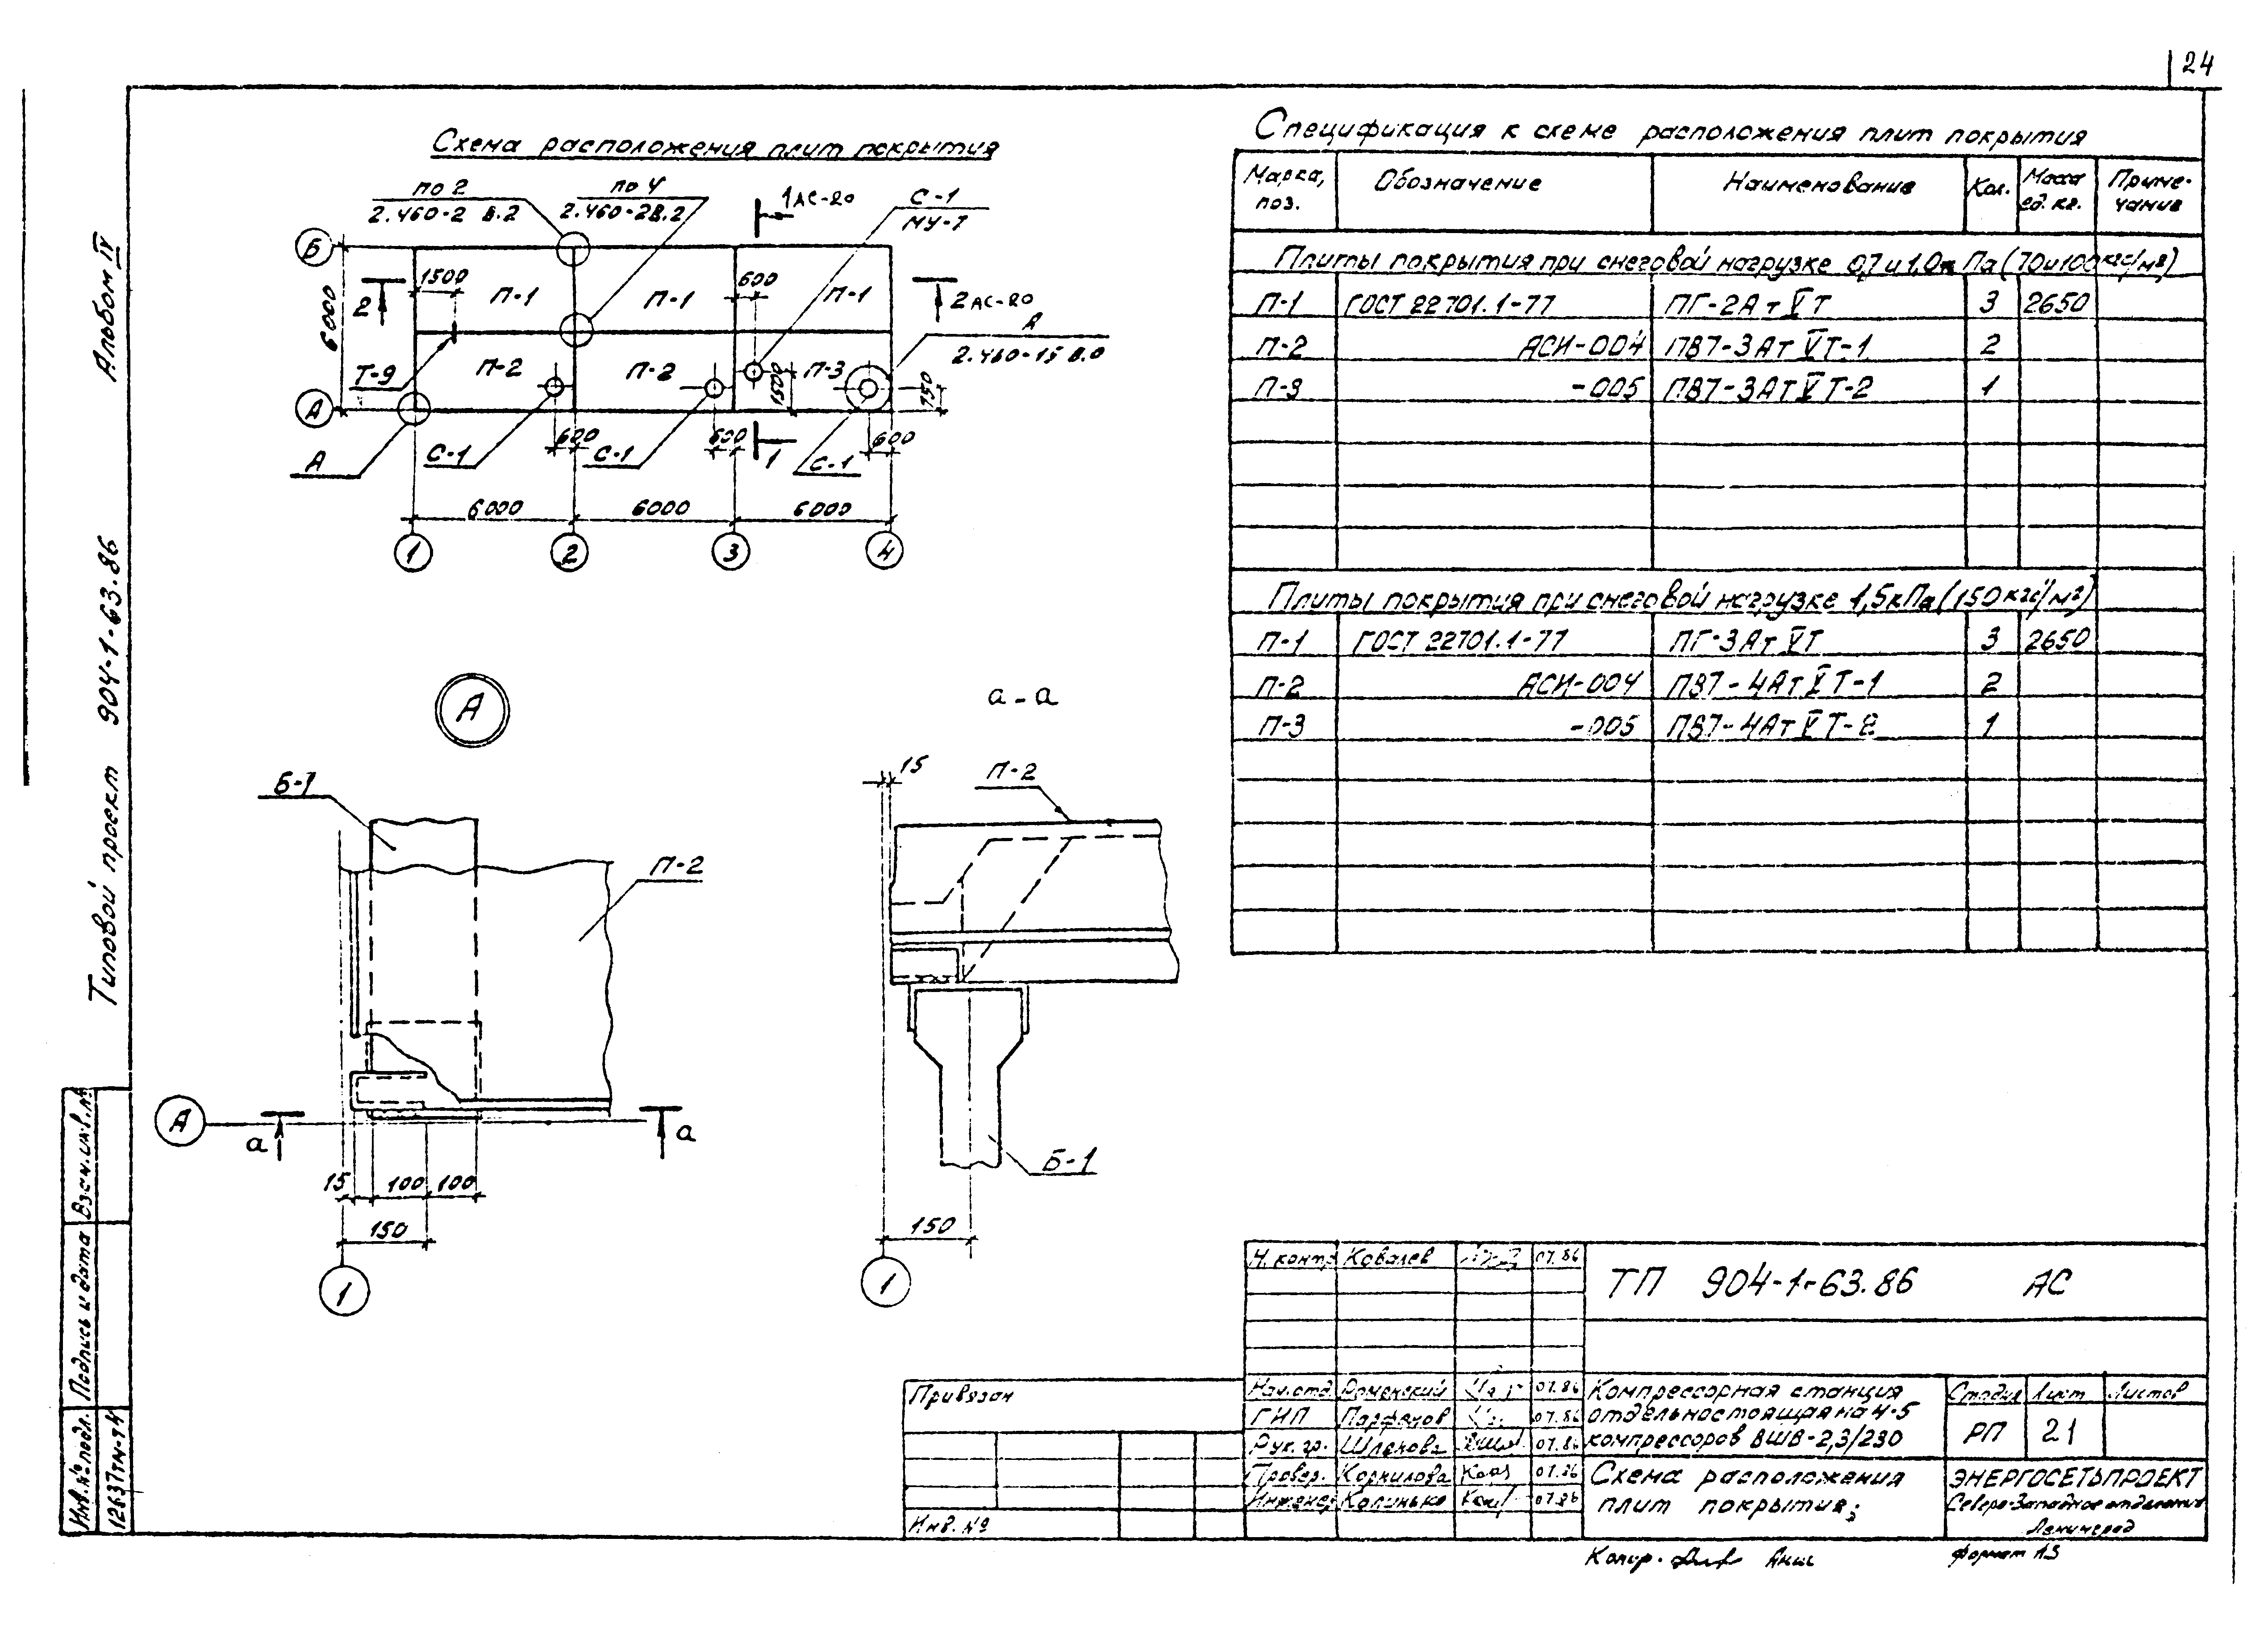 24
Альбом IV
Типовой проект 904-1-63.86
Схема расположения плит покрытия
по 2
2.460-2 В.2
по 4
2.460-2В.2
1 АС-20
С-1
МУ-7
Б
1500
П-1
П-1
600
П-1
2
2 АС-20
6000
А
2.460-15 В.0
Т-9
П-2
П-2
1500
П-3
750
А
А
С-1
600
С-1
600
1
С-1
600
6000
6000
6000
1
2
3
4
Спецификация к схеме расположения плит покрытия
Марка, поз. Обозначение Наименование Кол. Масса ед. кг. Примечание
Плиты покрытия при снеговой нагрузке 0,7 и 1,0к Па (70 и 100 кгс/м²)
П-1 ГОСТ 22701.1-77 ПГ-2Ат V Т 3 2650
П-2 АСИ-004 ПВ7-3Ат V Т-1 2
П-3 -005 ПВ7-3Ат V Т-2 1
Плиты покрытия при снеговой нагрузке 1,5кПа (150 кгс/м²)
П-1 ГОСТ 22701.1-77 ПГ-3Ат V Т 3 2650
П-2 АСИ-004 ПВ7-4Ат V Т-1 2
П-3 -005 ПВ7-4Ат V Т-2 1
А
Б-1
П-2
А
а
а
15
100
100
150
1
а-а
15
П-2
Б-1
150
1
Взам.инв.№
Подпись и дата
Инв.№подл.
12637тм-т4
Привязан
Инв. №
Н. контр Ковалев 07.86
Нач.отд Роменский 07.86
ГИП Парфенов 07.86
Рук. гр. Шленова 07.86
Провер. Корнилова 07.86
Инженер Калинько 07.86
ТП 904-1-63.86 АС
Компрессорная станция
отдельностоящая на 4-5
компрессоров ВШВ-2,3/230
Стадия Лист Листов
РП 21
Схема расположения
плит покрытия;
ЭНЕРГОСЕТЬПРОЕКТ
Северо-Западное отделение
Ленинград
Копир.
формат А3